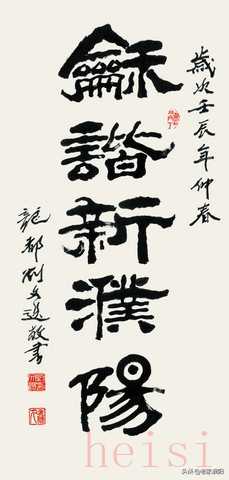 歲次壬辰年仲春
龢諧新濮陽
龍都劉文選敬書
heisi